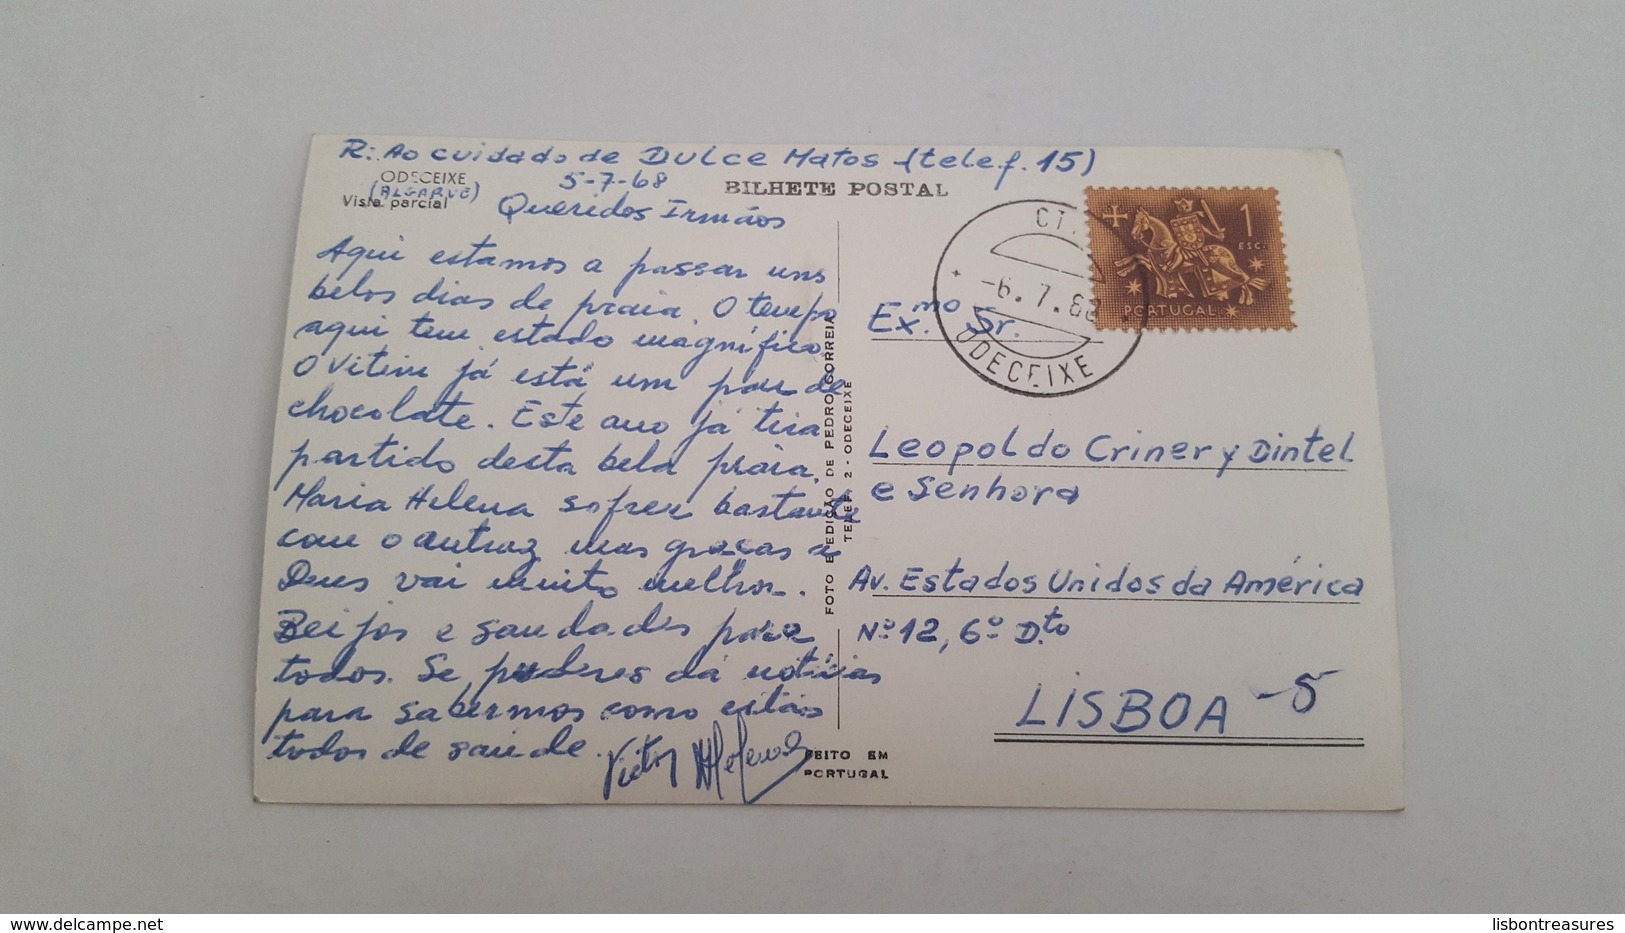 R: Ao cuidado de Dulce Matos (telef. 15)
ODECEIXE
(ALGARVE)
Vista parcial
5-7-68
BILHETE POSTAL
Queridos Irmãos
Aqui estamos a passar uns
belos dias de praia. O tempo
aqui tem estado magnífico.
O Vitim já está um pau de
chocolate. Este ano já tira
partido desta bela praia.
Maria Helena sofreu bastante
com o antraz mas graças a
Deus vai muito melhor.
Beijos e saudades para
todos. Se puderes dá notícias
para sabermos como estás
todos de saúde.
Victor Helena
FOTO E EDIÇÃO DE PEDRO CORREIA
TELEF. 2 - ODECEIXE
FEITO EM
PORTUGAL
CT
-6. 7. 68
ODECEIXE
1
ESC.
PORTUGAL
Ex.mo Sr.
Leopoldo Criner y Dintel
e Senhora
Av. Estados Unidos da América
Nº 12, 6º D.to
LISBOA -5
delcampe.net
lisbontreasures